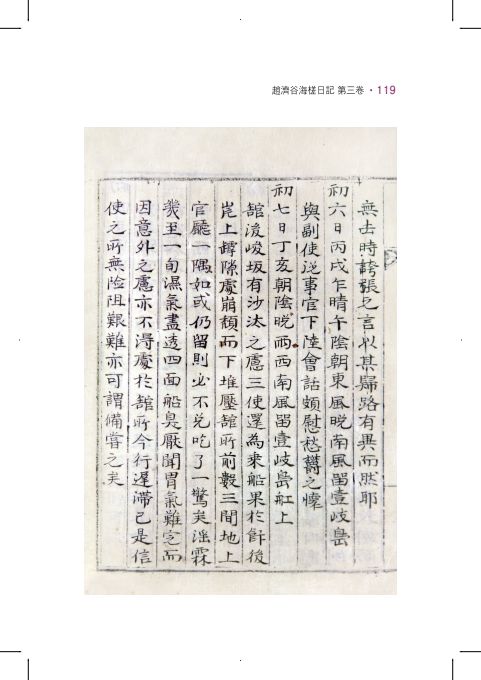 趙濟谷海槎日記 第三卷 · 119
無去時誇張之言以某歸路有異而然耶
初六日丙戌乍晴午陰朝東風晩南風留壹岐島
與副使從事官下陸會話頗慰愁欝之懷
初七日丁亥朝陰晩雨西南風留壹岐島舡上
舘後峻坂有沙汰之慮三使還爲乘船果於舘後
崑上罅隙處崩頹而下堆壓舘所前數三間地上
官廳一隅如或仍留則必不免吃了一驚矣淫霖
幾至一旬濕氣盡透四面船臭厭聞胃氣難定而
因意外之慮亦不淂處於舘所今行遲滯已是信
使之所無險阻艱難亦可謂備嘗之矣